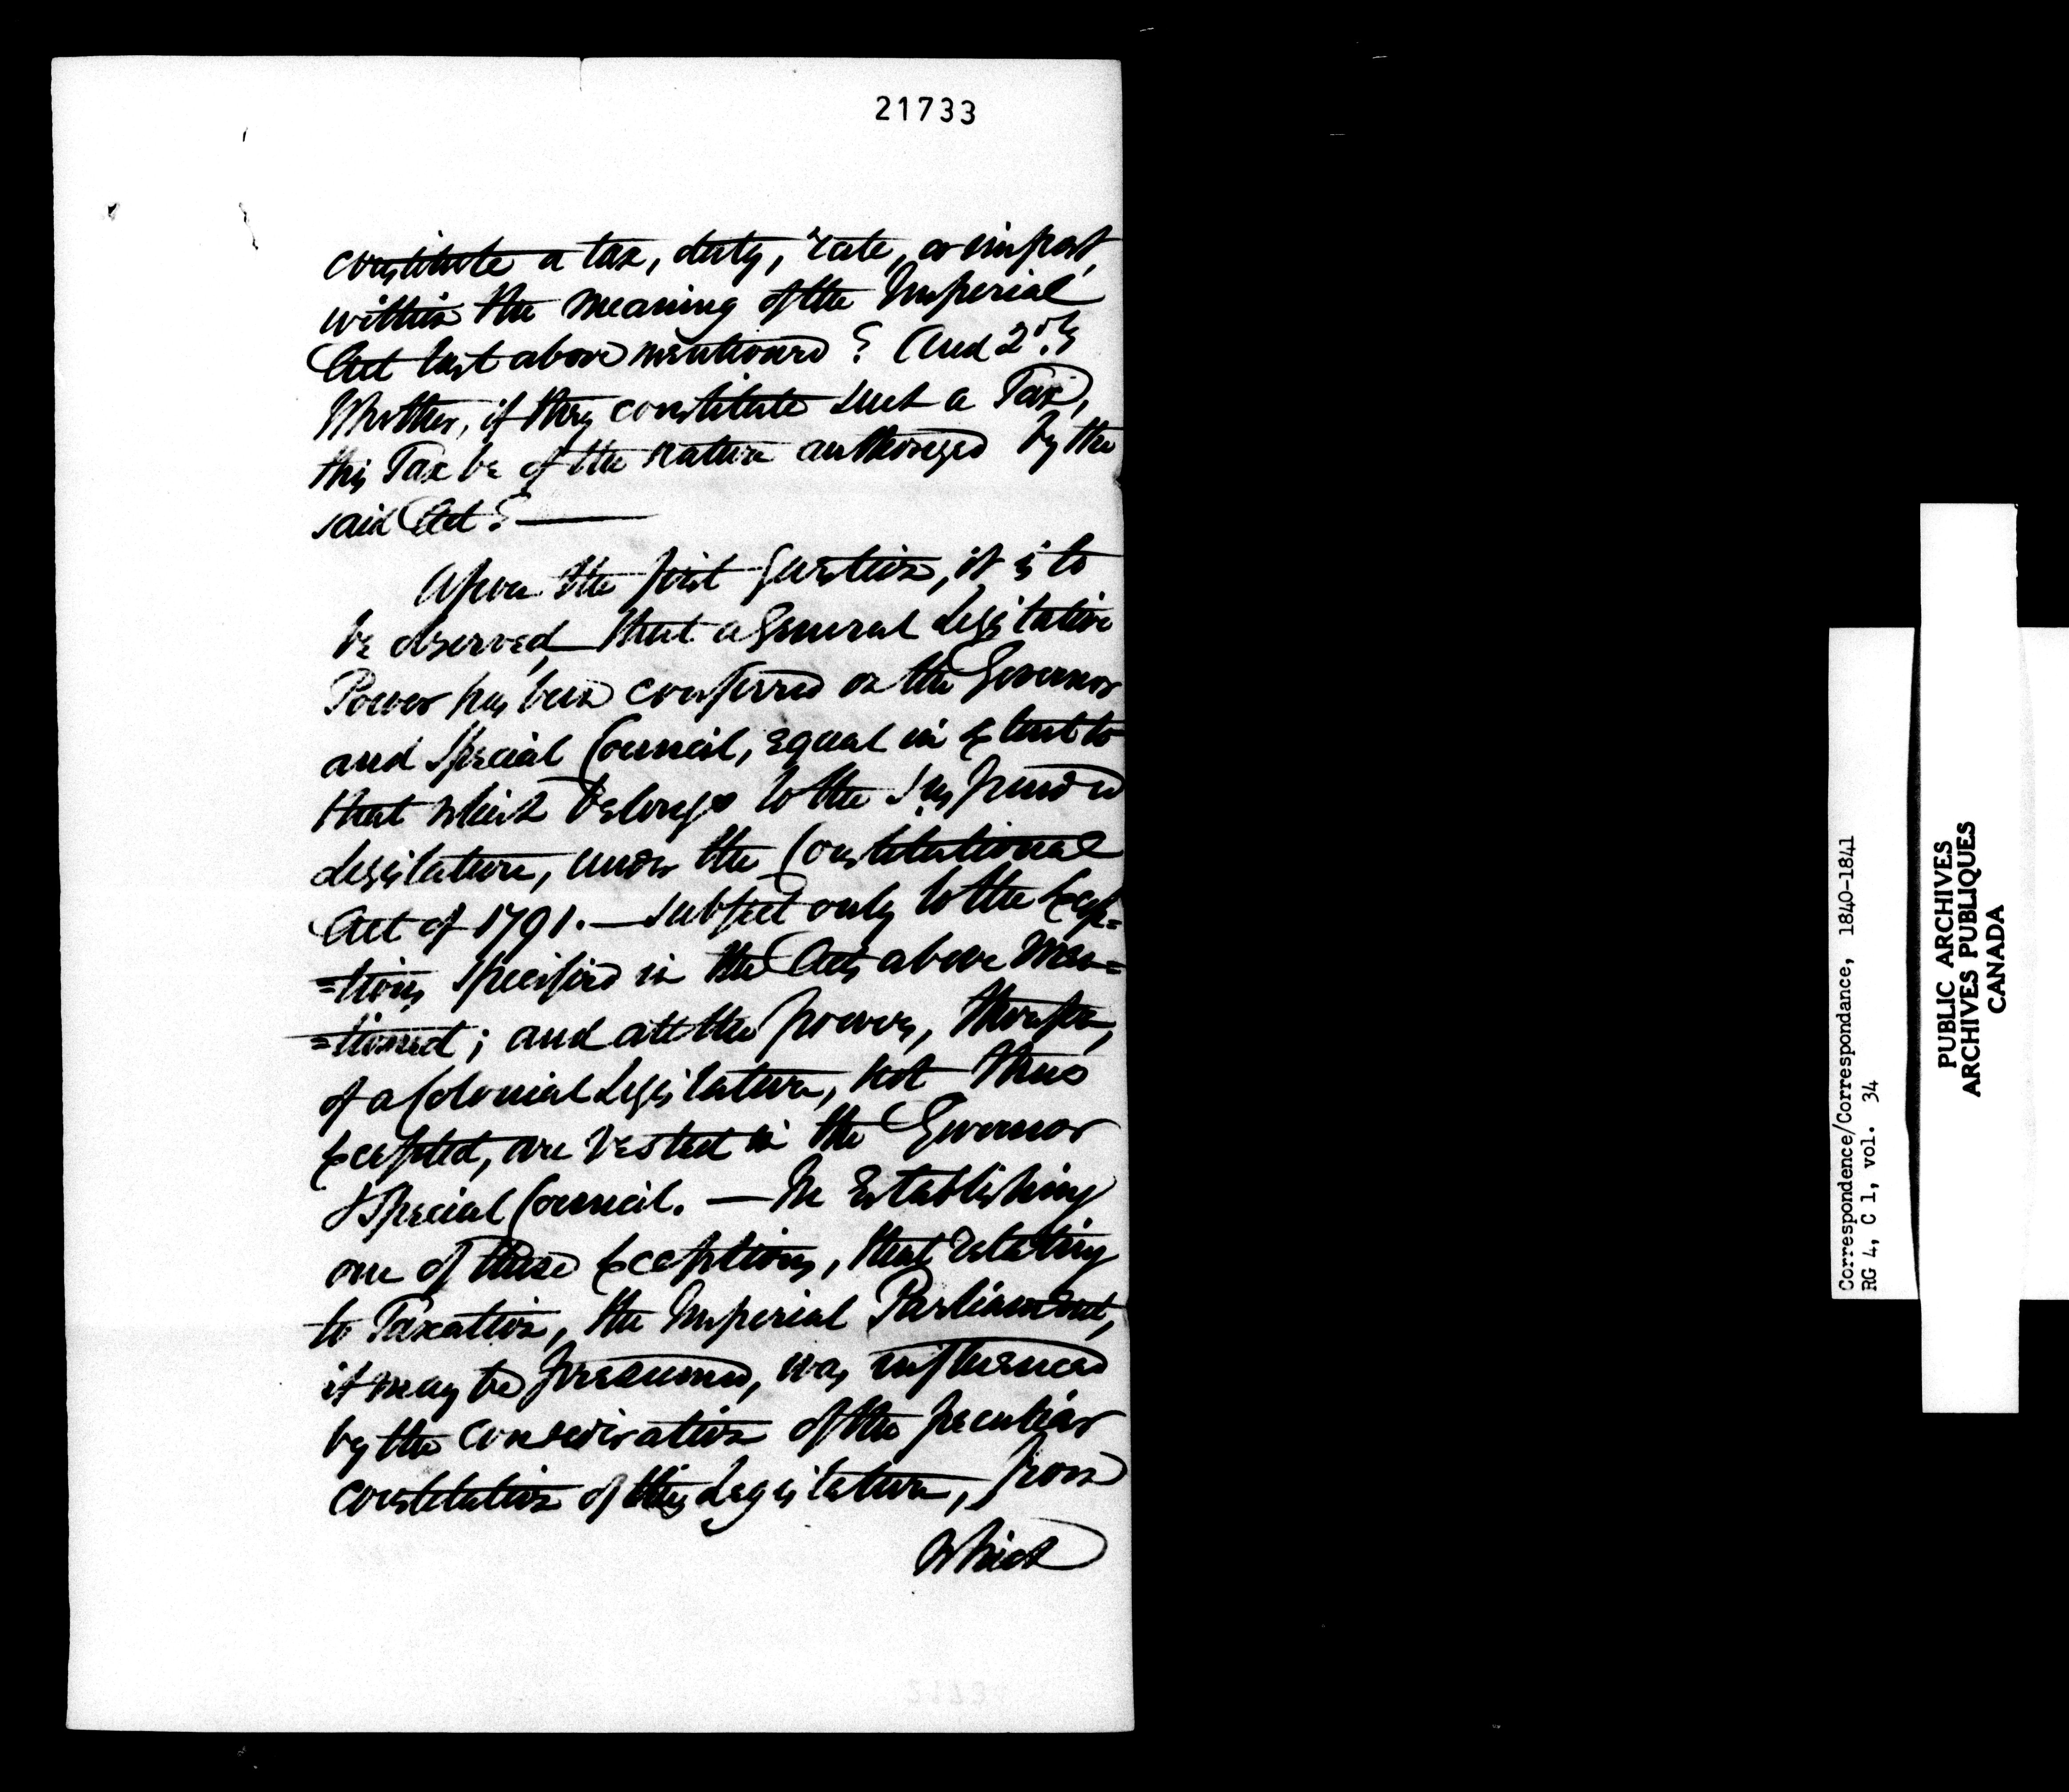 21733
constitute a tax, duty, rate, or impost,
within the meaning of the Imperial
Act last above mentioned? And 2dly
Whether, if they constitute such a Tax,
this Tax be of the nature authorized by the
said Act? —
Upon the first Question, it is to
be observed, that a General Legislative
Power has been conferred on the Governor
and Special Council, equal in extent to
that which belongs to the Suspended
Legislature, under the Constitutional
Act of 1791. — subject only to the Excep=
=tions specified in the Acts above Men=
=tioned; and all the powers, therefore,
of a Colonial Legislature, not thus
Excepted, are Vested in the Governor
& Special Council. — In Establishing
one of these Exceptions, that relating
to Taxation, the Imperial Parliament,
it may be presumed, was influenced
by the consideration of the peculiar
constitution of this Legislature, from
Which
Correspondence/Correspondance, 1840-1841
RG 4, C 1, vol. 34
PUBLIC ARCHIVES
ARCHIVES PUBLIQUES
CANADA